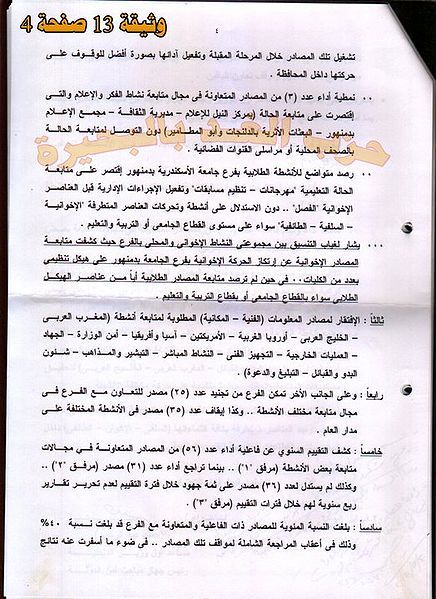 وثيقة 13 صفحة 4
٤
تشغيل تلك المصادر خلال المرحلة المقبلة وتفعيل أدائها بصورة أفضل للوقوف على
حركتها داخل المحافظة .
٠٠ نمطية أداء عدد (٣) من المصادر المتعاونة فى مجال متابعة نشاط الفكر والإعلام والتى
إقتصرت على متابعة الحالة (بمركز النيل للإعلام – مديرية الثقافة – مجمع الإعلام
بدمنهور – البعثات الأثرية بالدلنجات وأبو المطامير) دون التوصل لمتابعة الحالة
بالصحف المحلية أو مراسلى القنوات الفضائية .
حزب الغد بالبحيرة
٠٠ رصد متواضع للأنشطة الطلابية بفرع جامعة الأسكندرية بدمنهور إقتصر على متابعة
الحالة التعليمية "مهرجانات – تنظيم مسابقات" وتفعيل الإجراءات الإدارية قبل العناصر
الإخوانية "الفصل" .. دون الاستدلال على أنشطة وتحركات العناصر المتطرفة "الإخوانية
– السلفية – الطائفية" سواء على مستوى القطاع الجامعى أو التربية والتعليم .
٠٠٠ يشار لغياب التنسيق بين مجموعتى النشاط الإخوانى والمحلى بالفرع حيث كشفت متابعة
المصادر الإخوانية عن إرتكاز الحركة الإخوانية بفرع الجامعة بدمنهور على هيكل تنظيمى
بعدد من الكليات .. فى حين لم ترصد متابعة المصادر الطلابية أياً من عناصر الهيكل
الطلابى سواء بالقطاع الجامعى أو بقطاع التربية والتعليم .
ثالثاً : الإفتقار لمصادر المعلومات (الفنية – المكانية) المطلوبة لمتابعة أنشطة (المغرب العربى
– الخليج العربى – أوروبا الغربية – الأمريكتين – آسيا وأفريقيا – أمن الوزارة – الجهاد
– العمليات الخارجية – التجهيز الفنى – النشاط المباشر – التبشير والمذاهب – شئون
البدو والقبائل – التبليغ والدعوة) .
رابعاً : وعلى الجانب الأخر تمكن الفرع من تجنيد عدد (٢٥) مصدر للتعاون مع الفرع فى
مجال متابعة مختلف الأنشطة .. وكذا إيقاف عدد (٣٥) مصدر فى الأنشطة المختلفة على
مدار العام .
خامساً : كشف التقييم السنوي عن فاعلية أداء عدد (٥٦) من المصادر المتعاونة فى مجالات
متابعة بعض الأنشطة (مرفق "١") .. بينما تراجع أداء عدد (٣١) مصدر (مرفق "٢") ..
وكذلك لم يستدل لعدد (٣٦) مصدر على ثمة جهود خلال فترة التقييم لعدم تحرير تقارير
ربع سنوية لهم خلال فترات التقييم (مرفق "٣") .
سادساً : بلغت النسبة المئوية للمصادر ذات الفاعلية والمتعاونة مع الفرع قد بلغت نسبة ٤٠%
وذلك فى أعقاب المراجعة الشاملة لمواقف تلك المصادر .. فى ضوء ما أسفرت عنه نتائج